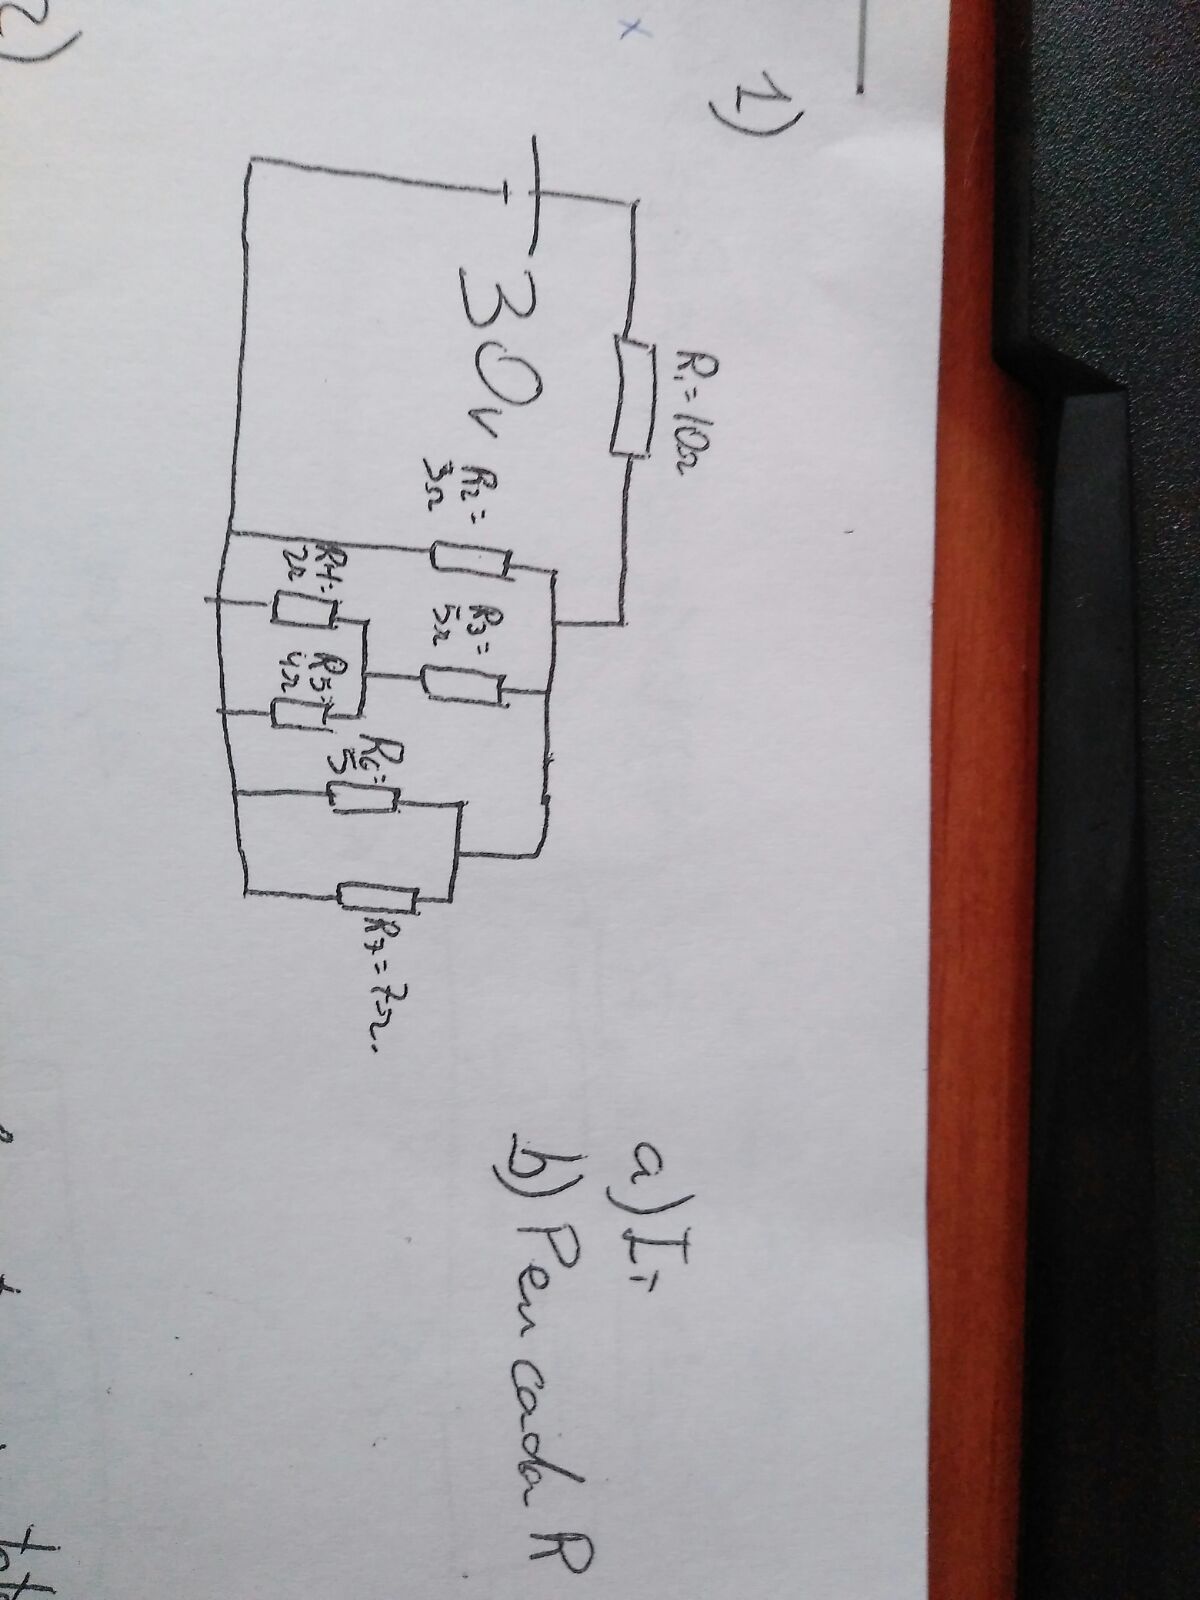 1)
R1=10Ω
30v
R2=
3Ω
R3=
5Ω
R4=
2Ω
R5=
4Ω
R6=
5
R7=7Ω.
a) IT
b) P en cada R
2)